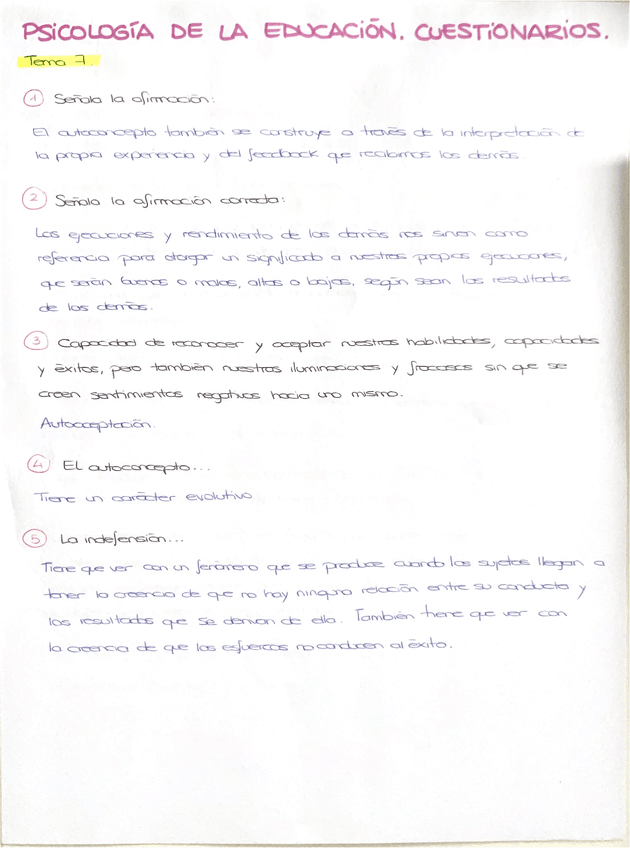 PSICOLOGÍA DE LA EDUCACIÓN. CUESTIONARIOS.
Tema 7.
1 Señala la afirmación:
El autoconcepto también se construye a través de la interpretación de
la propia experiencia y del feedback que recibimos los demás.
2 Señala la afirmación correcta:
Las ejecuciones y rendimiento de los demás nos sirven como
referencia para otorgar un significado a nuestras propias ejecuciones,
que serán buenas o malas, altas o bajas, según sean los resultados
de los demás.
3 Capacidad de reconocer y aceptar nuestras habilidades, capacidades
y éxitos, pero también nuestras iluminaciones y fracasos sin que se
creen sentimientos negativos hacia uno mismo.
Autoaceptación.
4 El autoconcepto...
Tiene un carácter evolutivo
5 La indefensión...
Tiene que ver con un fenómeno que se produce cuando los sujetos llegan a
tener la creencia de que no hay ninguna relación entre su conducta y
los resultados que se derivan de ella. También tiene que ver con
la creencia de que los esfuerzos no conducen al éxito.